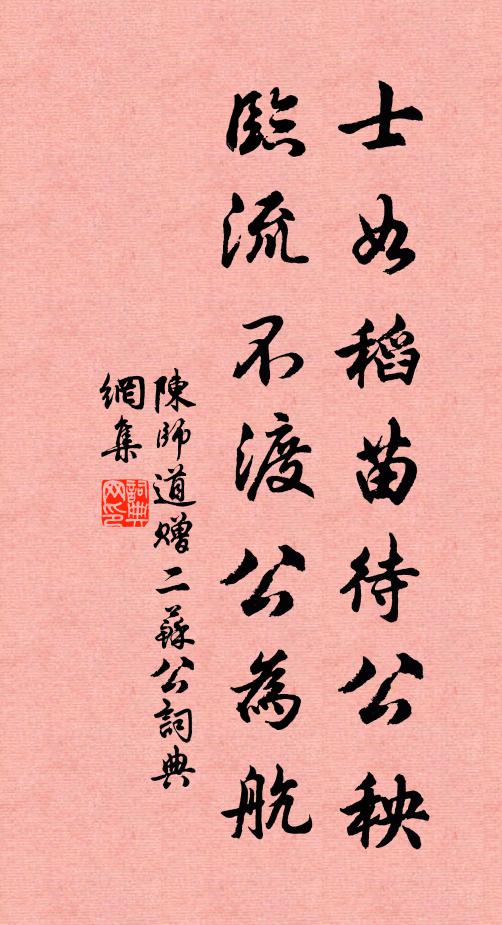 士如稻苗待公秧
臨流不渡公為航
陳師道贈二蘇公詞典
網集
詞典網印